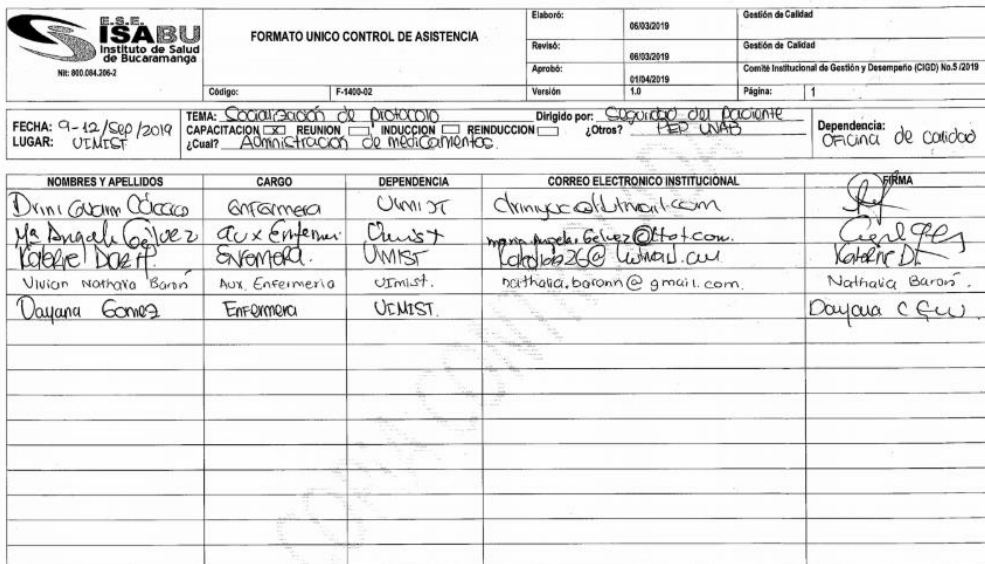 E.S.E.
ISABU
Instituto de Salud
de Bucaramanga
Nit: 800.084.206-2
FORMATO UNICO CONTROL DE ASISTENCIA
Elaboró: 06/03/2019 Gestión de Calidad
Revisó: 06/03/2019 Gestión de Calidad
Aprobó: 01/04/2019 Comité Institucional de Gestión y Desempeño (CIGD) No.5 /2019
Código: F-1400-02 Versión 1.0 Página: 1
FECHA: 9-12/Sep/2019
LUGAR: UIMIST
TEMA: Socialización de protocolo Dirigido por: Seguridad del paciente
CAPACITACION X REUNION INDUCCION REINDUCCION ¿Otros? PEP UNAB
¿Cual? Administración de medicamentos.
Dependencia:
Oficina de calidad
NOMBRES Y APELLIDOS CARGO DEPENDENCIA CORREO ELECTRONICO INSTITUCIONAL FIRMA
enfermera
Mª Angela Gelvez aux
Enfermera. UMIST
Vivian Nathalia Barón Aux. Enfermeria UImist. nathalia.baronn@gmail.com. Nathalia Barón.
Dayana Gomez Enfermera UIMIST. Dayana C